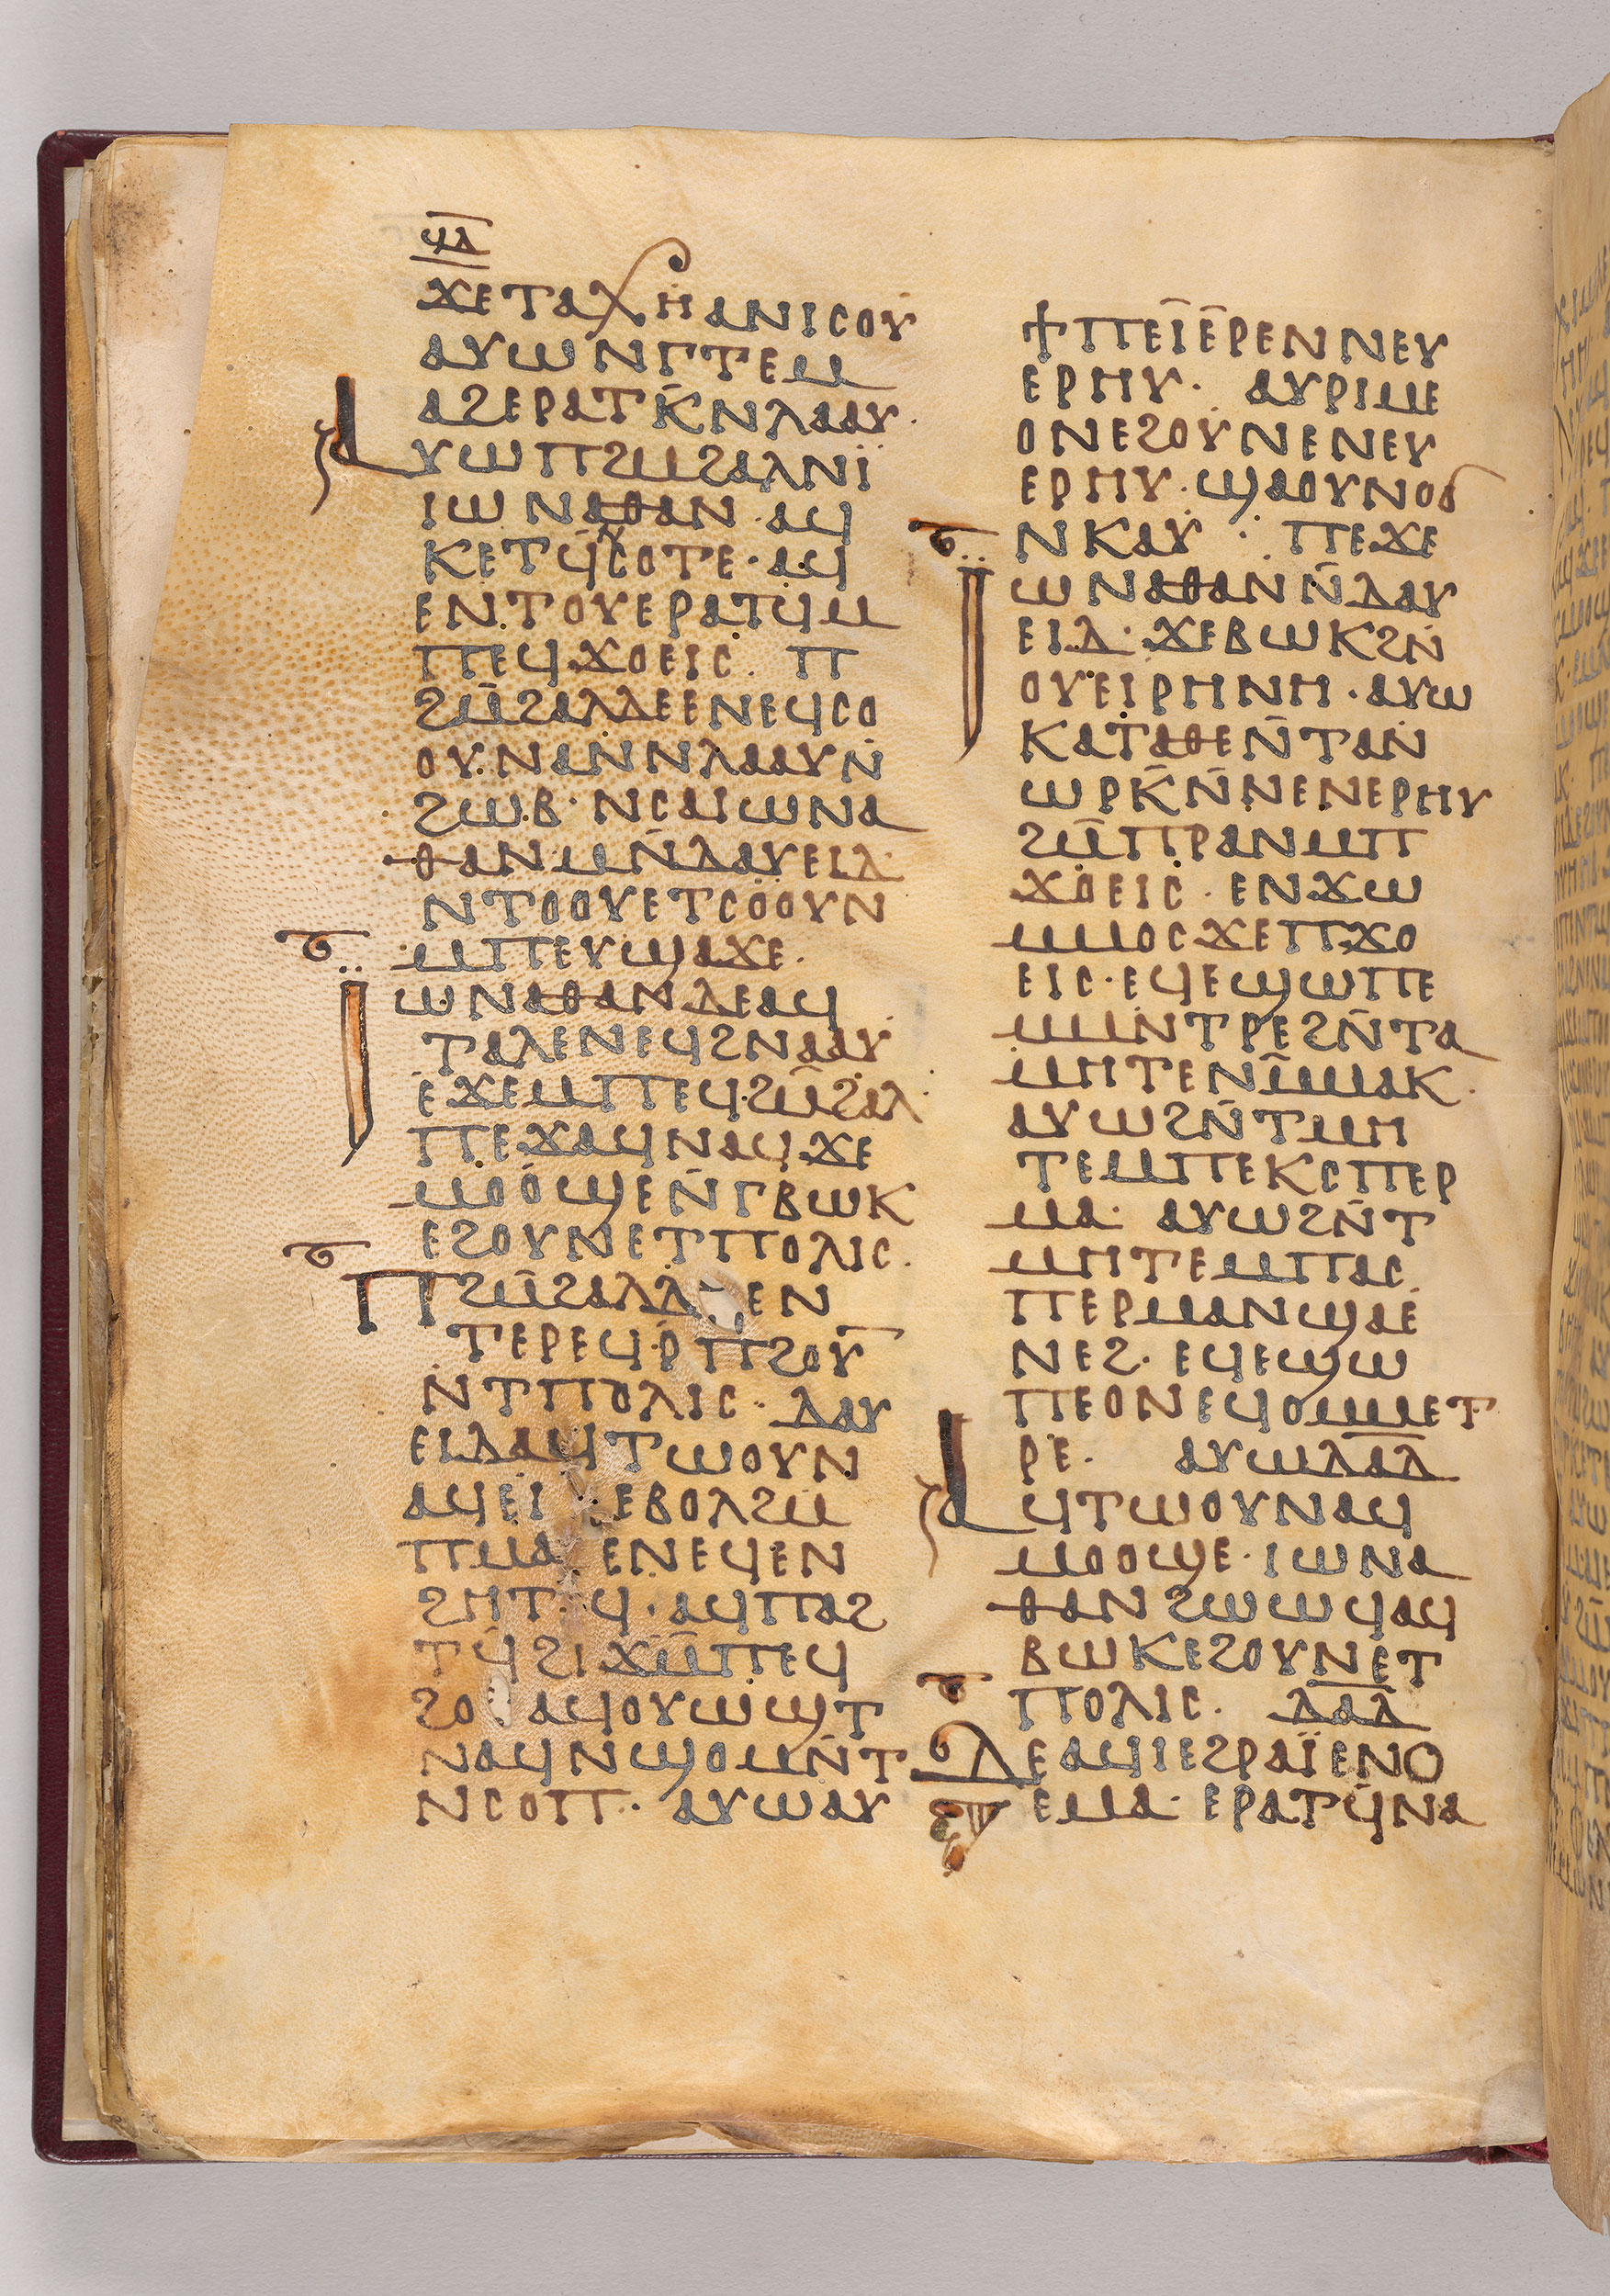 ϤⲆ
ϪⲈⲦⲀⲬⲎⲀⲚⲒⲤⲞⲨ
ⲀⲨⲰⲚⲄⲦⲈⲘ
ⲀϨⲈⲢⲀⲦⲔ̄ⲚⲖⲀⲀⲨ·
ⲀⲨⲰⲠϨⲘϨⲀⲖⲚⲒ̈
ⲒⲰⲚⲀⲐⲀⲚ·ⲀϤ
ⲔⲈⲦϤⲤⲞⲦⲈ·ⲀϤ
ⲈⲚⲦⲞⲨⲈⲢⲀⲦϤⲘ
ⲠⲈϤϪⲞⲈⲒⲤ· Ⲡ
ϨⲘ̄ϨⲀⲖⲆⲈⲈⲚⲈϤⲤⲞ
ⲞⲨⲚⲀⲚⲚⲖⲀⲀⲨⲚ̇
ϨⲰⲂ·ⲚⲤⲀⲒⲰⲚⲀ
ⲐⲀⲚⲘⲚ̄ⲆⲀⲨⲈⲒⲆ·
ⲚⲦⲞⲞⲨⲈⲦⲤⲞⲞⲨⲚ
ⲘⲠⲈⲨϢⲀϪⲈ·
Ⲓ̈ⲰⲚⲀⲐⲀⲚⲆⲈⲀϤ
ⲦⲀⲖⲈⲚⲈϤϨⲚⲀⲀⲨ
ⲈϪⲈⲘⲠⲈϤϨⲘ̄ϨⲀⲖ·
ⲠⲈϪⲀϤⲚⲀϤϪⲈ
ⲘⲞⲞϢⲈⲚ̄ⲄⲂⲰⲔ
ⲈϨⲞⲨⲚⲈⲦⲠⲞⲖⲒⲤ·
ⲠϨⲘ̄ϨⲀⲖⲆⲈⲚ
ⲦⲈⲢⲈϤⲢⲠϨⲞⲨ̄
ⲚⲦⲠⲞⲖⲒⲤ·ⲆⲀⲨ
ⲈⲒⲆⲀϤⲦⲰⲞⲨⲚ
ⲀϤⲈⲒ ⲈⲂⲞⲖϨⲘ
ⲠⲘⲀ ⲈⲚⲈϤⲈⲚ
ϨⲎⲦϤ·ⲀϤⲠⲀϨ
ⲦϤ̄ϨⲒϪⲘ̄ⲠⲈϤ
ϨⲞ ⲀϤⲞⲨⲰϢⲦ
ⲚⲀϤⲚϢⲞⲘⲚ̄Ⲧ
ⲚⲤⲞⲠ· ⲀⲨⲰⲀⲨ
ϮⲠⲈⲒ̄ⲈⲢⲈⲚⲚⲈⲨ
ⲈⲢⲎⲨ· ⲀⲨⲢⲒⲘⲈ
ⲞⲚⲈϨⲞⲨⲚⲈⲚⲈⲨ
ⲈⲢⲎⲨ·ϢⲀⲞⲨⲚⲞϬ
ⲚⲔⲀⲨ· ⲠⲈϪⲈ
Ⲓ̈ⲰⲚⲀⲐⲀⲚⲚ̄ⲆⲀⲨ
ⲈⲒⲆ·ϪⲈⲂⲰⲔϨⲚ̄
ⲞⲨⲈⲒⲢⲎⲚⲎ·ⲀⲨⲰ
ⲔⲀⲦⲀⲐⲈⲚ̄ⲦⲀⲚ
ⲰⲢⲔ̄Ⲛ̄ⲚⲈⲚⲈⲢⲎⲨ
ϨⲘ̄ⲠⲢⲀⲚⲘⲠ
ϪⲞⲈⲒⲤ·ⲈⲚϪⲰ
ⲘⲘⲞⲤϪⲈⲠϪⲞ
ⲈⲒⲤ·ⲈϤⲈϢⲰⲠⲈ
ⲘⲘⲚⲦⲢⲈϨⲚ̄ⲦⲀ
ⲘⲎⲦⲈⲚⲘ̄ⲘⲀⲔ·
ⲀⲨⲰϨⲚ̄ⲦⲘⲎ
ⲦⲈⲘⲠⲈⲔⲤⲠⲈⲢ
ⲘⲀ· ⲀⲨⲰϨⲚ̄Ⲧ
ⲘⲎⲦⲈⲘⲠⲀⲤ
ⲠⲈⲢⲘⲀⲚϢⲀⲈ
ⲚⲈϨ·ⲈϤⲈϢⲰ
ⲠⲈⲞⲚⲈϤⲞⲘⲘⲈⲦ
ⲢⲈ· ⲀⲨⲰⲆⲀ̄Ⲇ
ⲀϤⲦⲰⲞⲨⲚⲀϤ
ⲘⲞⲞϢⲈ·ⲒⲰⲚⲀ
ⲐⲀⲚϨⲰⲰϤⲀϤ
ⲂⲰⲔⲈϨⲞⲨⲚⲈⲦ
ⲠⲞⲖⲒⲤ· ⲆⲀ̄Ⲇ
ⲆⲈⲀϤⲒⲈϨⲢⲀⲒ̈ⲈⲚⲞ
ⲈⲘⲀ·ⲈⲢⲀⲦϤ̄ⲚⲀ